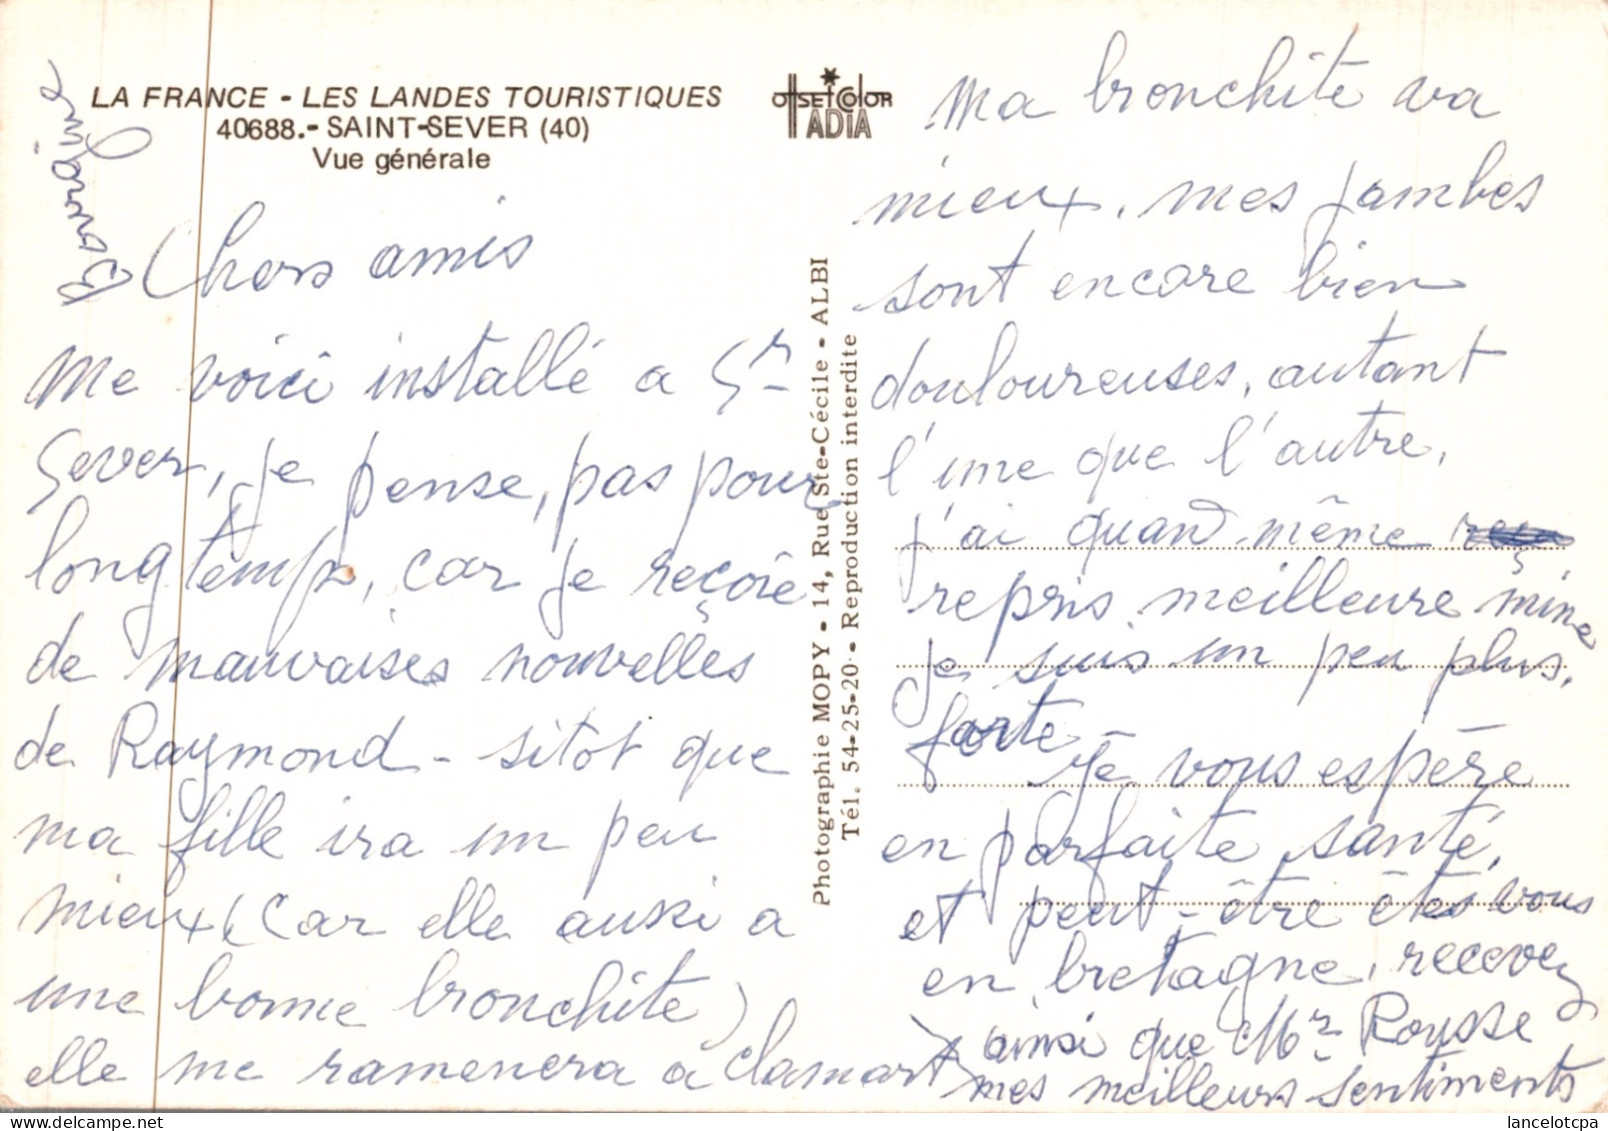 LA FRANCE - LES LANDES TOURISTIQUES
40688.- SAINT-SEVER (40)
Vue générale
OffSET COlOR
IADIA
Chers amis
me voici installé a St
Sever, je pense, pas pour
longtemps, car je reçoie
de mauvaises nouvelles
de Raymond - sitot que
ma fille ira un peu
mieux (car elle aussi a
une bonne bronchite)
elle me ramenera à Clamart
Photographie MOPY - 14, Rue Ste-Cécile - ALBI
Tél. 54-25-20 - Reproduction interdite
ma bronchite va
mieux, mes jambes
sont encore bien
douloureuses, autant
l'une que l'autre,
j'ai quand même
repris meilleure mine
je suis un peu plus
forte
Je vous espère
en parfaite santé,
et peut-être êtes vous
en bretagne, recevez
ainsi que Mr Rousse
mes meilleurs sentiments
lancelotcpa